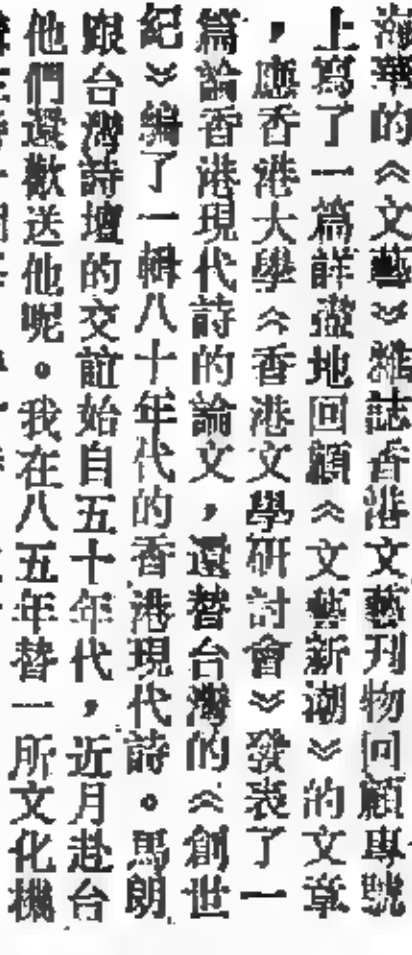 海華的《文藝》雜誌香港文藝刊物回顧專號
上寫了一篇詳盡地回顧《文藝新潮》的文章
,應香港大學《香港文學研討會》發表了一
篇論香港現代詩的論文,還替台灣的《創世
紀》編了一輯八十年代的香港現代詩。馬朗
跟台灣詩壇的交誼始自五十年代,近月赴台
他們還歡送他呢。我在八五年替一所文化機